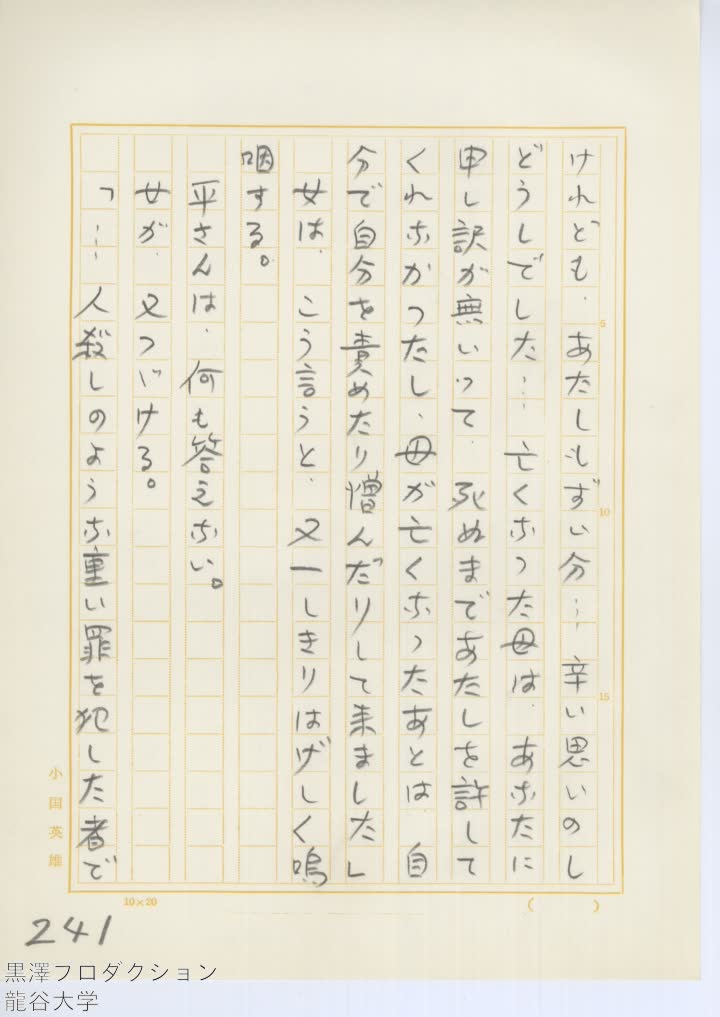 けれども、あたしもずい分…辛い思いのし
どうしでした…亡くなった母は、あなたに
申し訳が無いって、死ぬまであたしを許して
くれなかつたし、母が亡くなったあとは、自
分で自分を責めたり憎んだりして来ました」
女は、こう言うと、又一しきりはげしく嗚
咽する。
平さんは、何も答えない。
女が、又つゞける。
「…人殺しのような重い罪を犯した者で
5
10
15
小国英雄
10×20
( )
241
黒澤プロダクション
龍谷大学